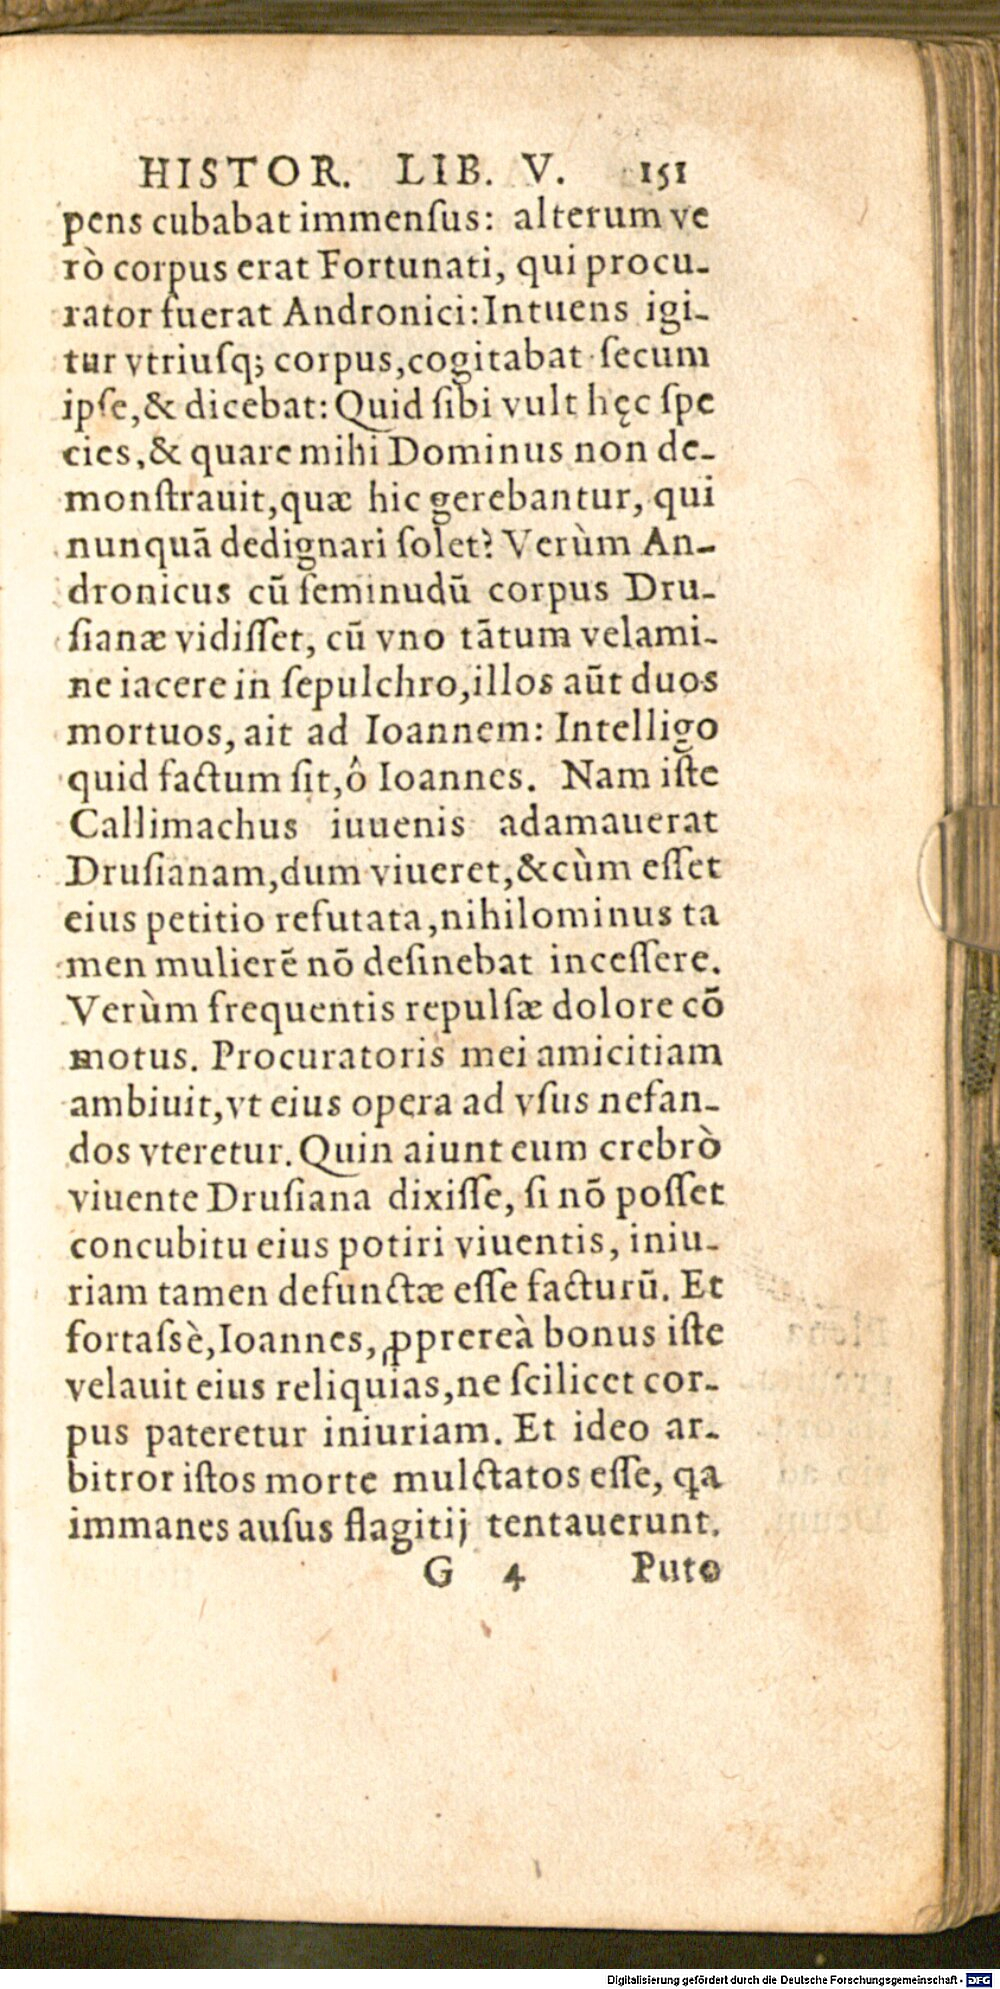 HISTOR. LIB. V. 151
pens cubabat immenſus: alterum ve
rò corpus erat Fortunati, qui procu-
rator fuerat Andronici: Intuens igi-
tur vtriuſq; corpus, cogitabat ſecum
ipſe, & dicebat: Quid ſibi vult hęc ſpe
cies, & quare mihi Dominus non de-
monſtrauit, quæ hic gerebantur, qui
nunquā dedignari ſolet? Verùm An-
dronicus cū ſeminudū corpus Dru-
ſianæ vidiſſet, cū vno tātum velami-
ne iacere in ſepulchro, illos aūt duos
mortuos, ait ad Ioannem: Intelligo
quid factum ſit, ô Ioannes. Nam iſte
Callimachus iuuenis adamauerat
Druſianam, dum viueret, & cùm eſſet
eius petitio refutata, nihilominus ta
men mulierē nō deſinebat inceſſere.
Verùm frequentis repulſæ dolore cō
motus. Procuratoris mei amicitiam
ambiuit, vt eius opera ad vſus nefan-
dos vteretur. Quin aiunt eum crebrò
viuente Druſiana dixiſſe, ſi nō poſſet
concubitu eius potiri viuentis, iniu-
riam tamen defunctæ eſſe facturū. Et
fortaſsè, Ioannes, ꝓprereà bonus iſte
velauit eius reliquias, ne ſcilicet cor-
pus pateretur iniuriam. Et ideo ar-
bitror iſtos morte mulctatos eſſe, qa
immanes auſus flagitij tentauerunt.
G 4 Puto
Digitalisierung gefördert durch die Deutsche Forschungsgemeinschaft - DFG